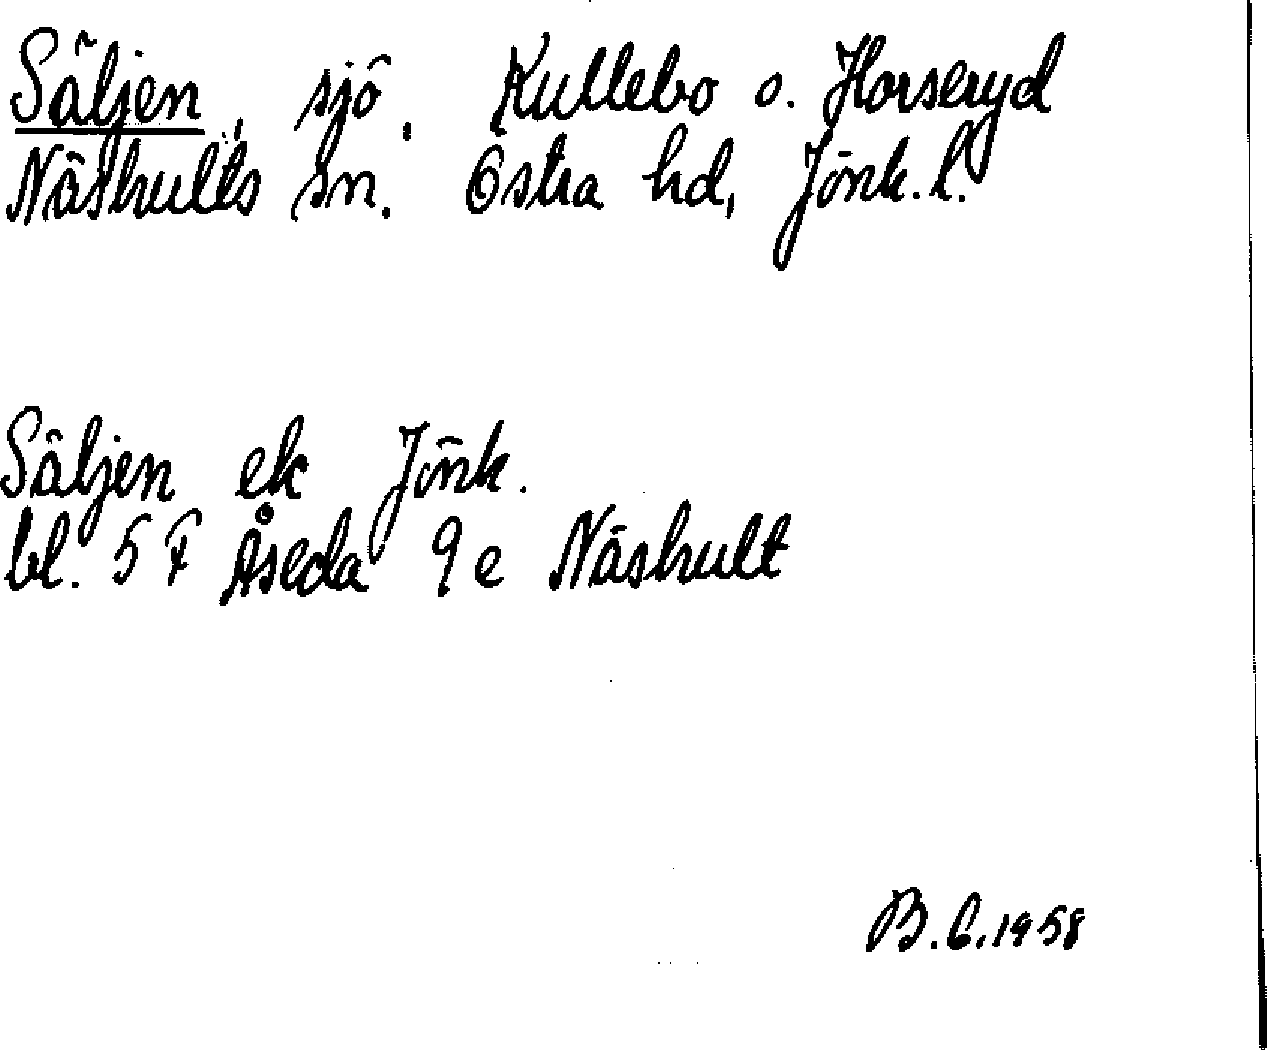 Säljen, sjö. Kullebo o. Horseryd
Näshults sn. Östra hd, Jönk. l.
Säljen ek Jönk.
bl. 5 F Åseda 9 e Näshult
B. C. 1958